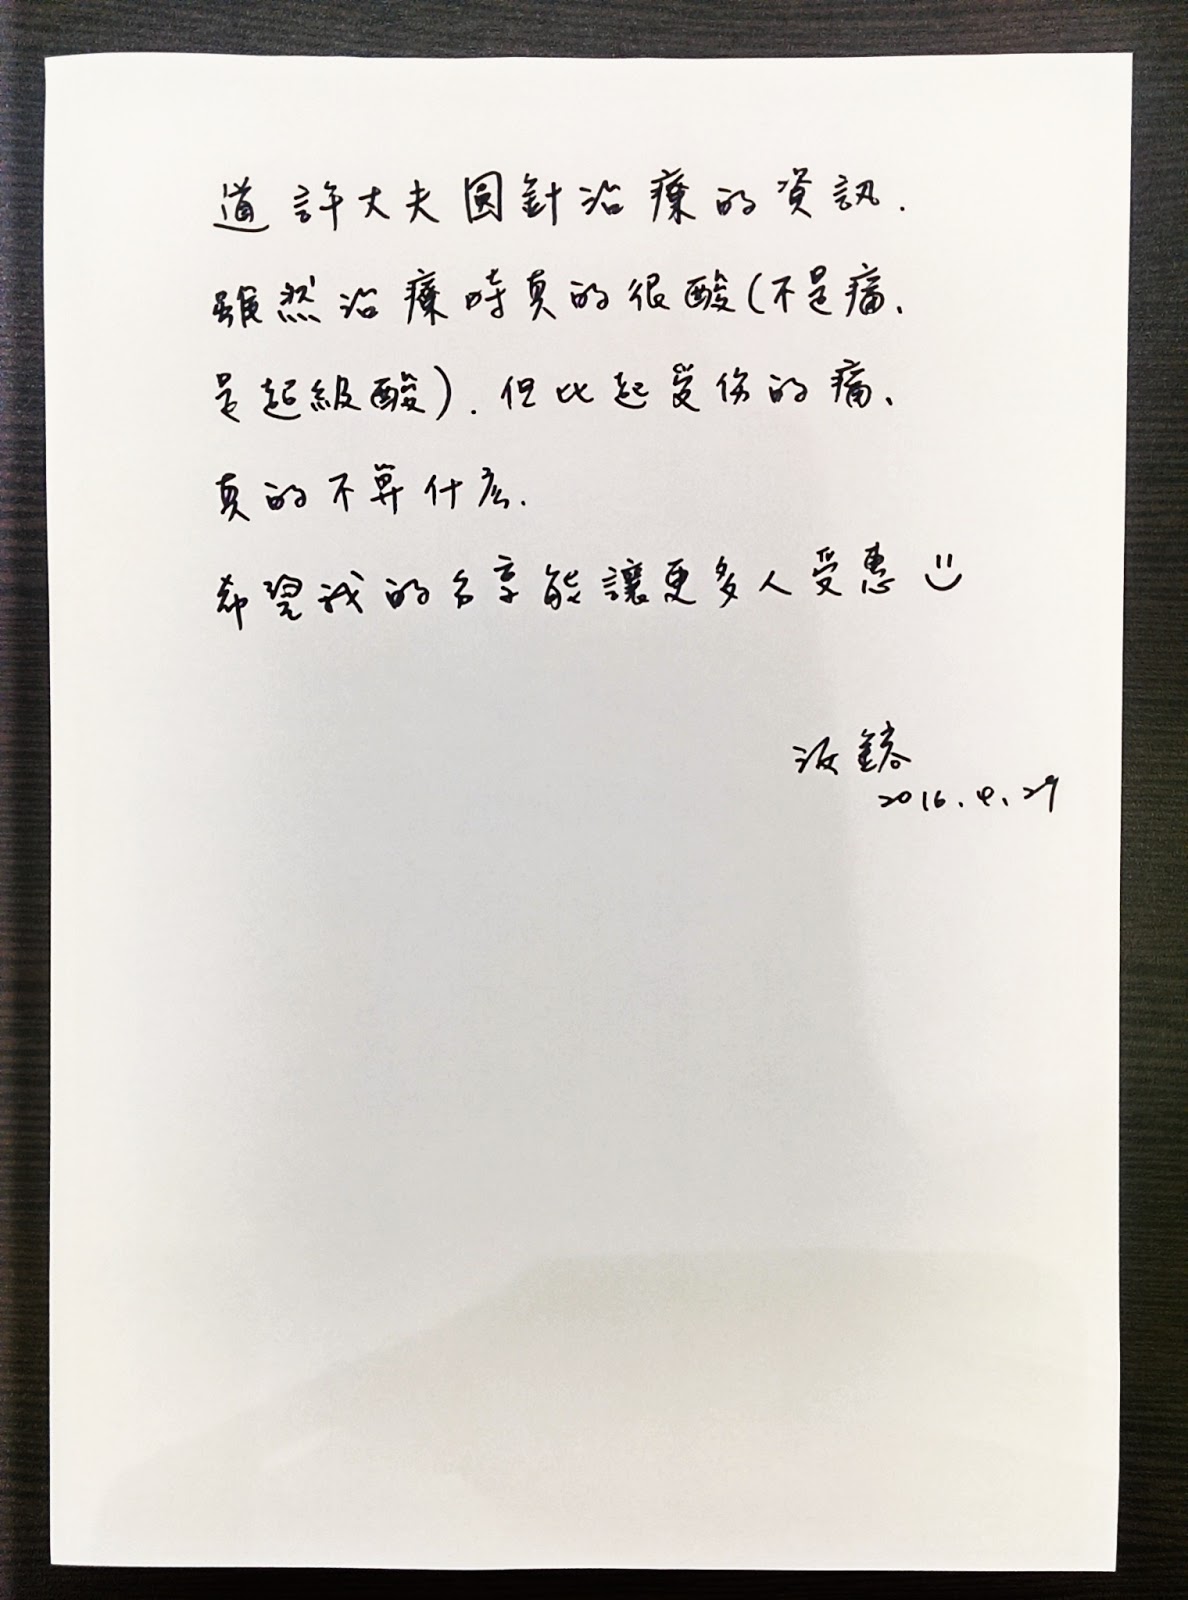 道許大夫圓針治療的資訊.
雖然治療時真的很酸(不是痛、
是超級酸). 但比起受傷的痛、
真的不算什么.
希望我的分享能讓更多人受惠
2016.4.29